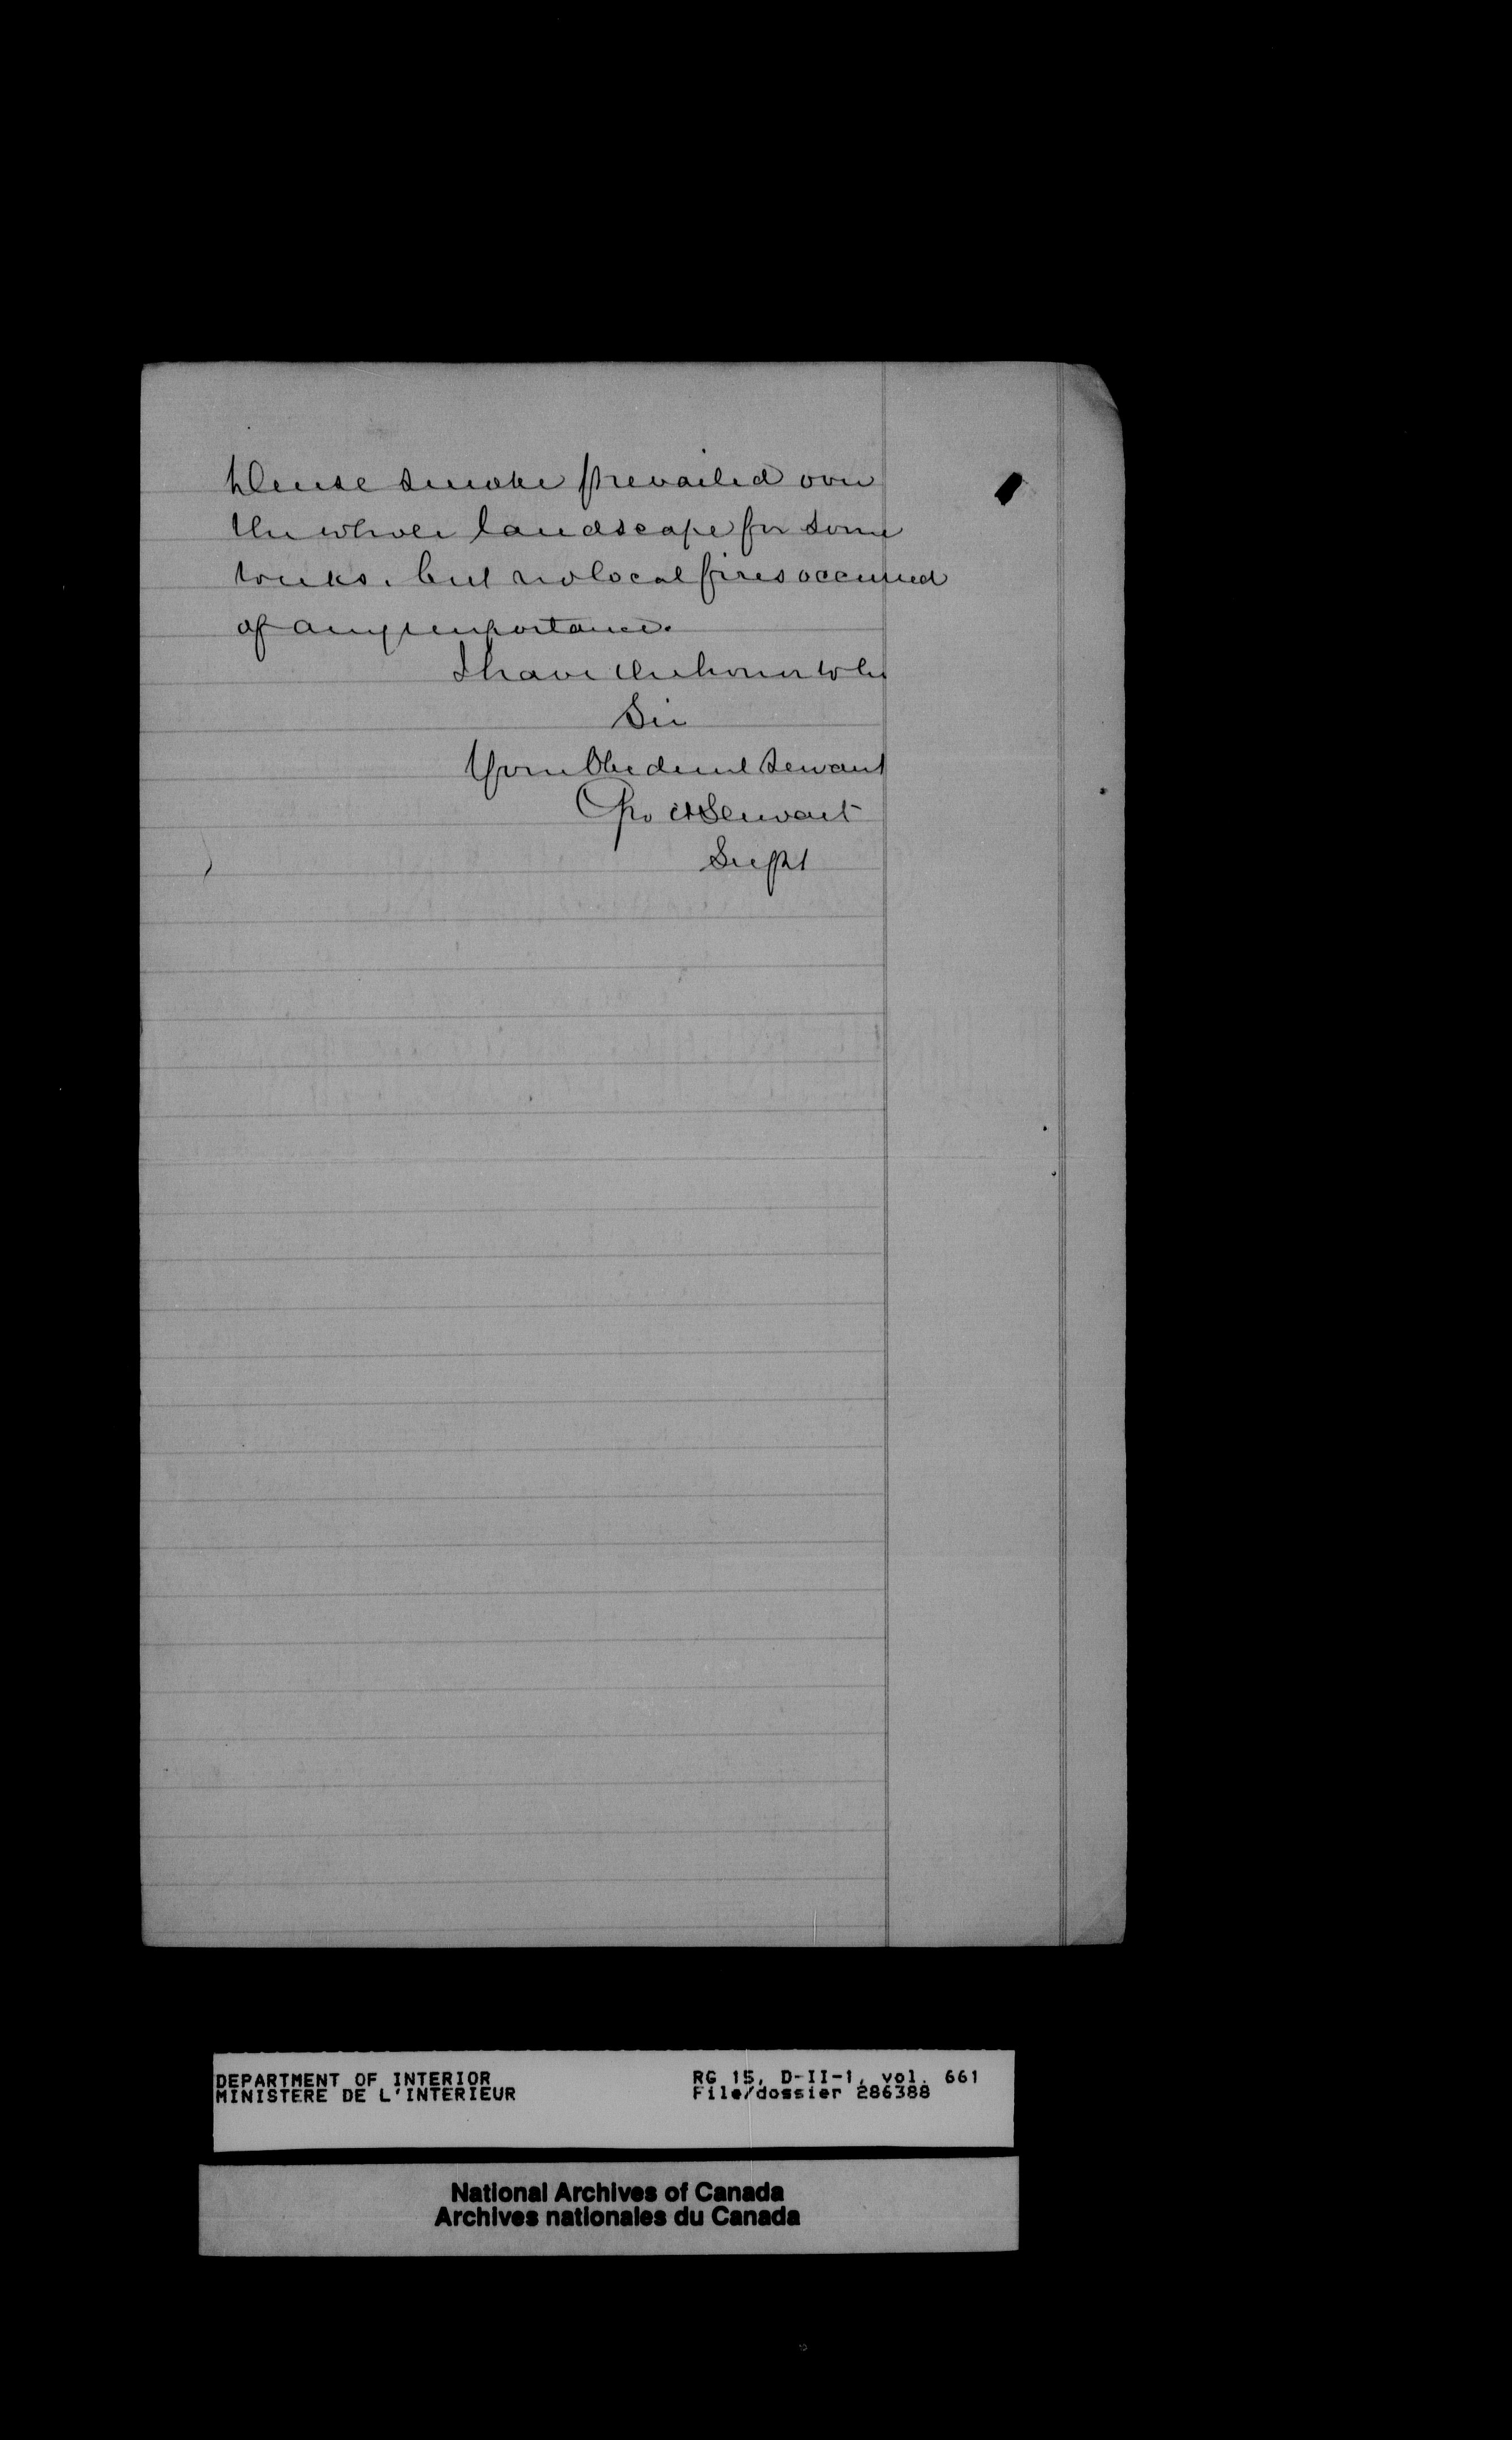 Dense smoke prevailed over
the whole landscape for some
weeks. but no local fires occurred
of any importance.
I have the honor to be
Sir
Your Obedient Servant
Geo A Stewart
Supt
DEPARTMENT OF INTERIOR RG 15, D-II-1, vol. 661
MINISTERE DE L'INTERIEUR File/dossier 286388
National Archives of Canada
Archives nationales du Canada